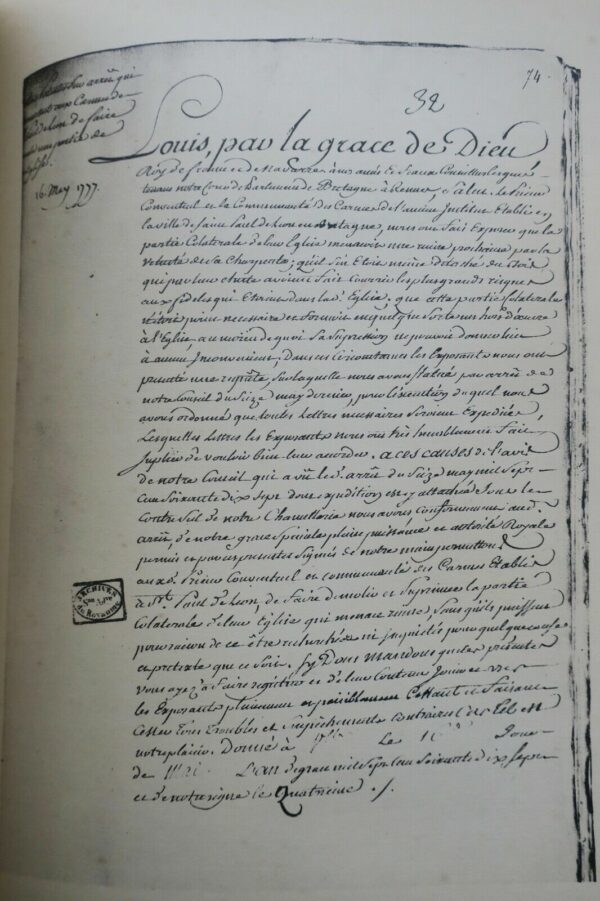 74.
32
arrêt qui
aux Carmes de
de Leon de faire
partie de
16. May 1777.
Louis, par la grace de Dieu
Roy de france et de Navarre à nos amés Et feaux Conseillers les gens
tenans notre Cour de Parlement de Bretagne à Rennes, Salut. Le Prieur
Conventuel et la Communauté des Carmes de l'ancien Institut Etablis en
la ville de Saint Paul de Leon en Bretagne, nous ont fait Exposer que la
partie Colaterale de leur Eglise menaçoit une ruine prochaine par la
vetusté de sa Charpente; qu'il s'en Etoit même détaché du bois
qui par leur chute avoient fait Courir les plus grands risques
aux fideles qui Etoient dans lad. Eglise. que cette partie Colaterale
n'étoit point necessaire et formoit en quelque sorte un hors d'œuvre
à l'Eglise au moien de quoi sa Supression ne pouvoit donner lieu
à aucun Inconvenient; Dans ces Circonstances les Exposants nous ont
presenté une requête sur laquelle nous avons statué par arrêt de
notre Conseil du Seize may dernier, pour l'execution duquel nous
avons ordonné que toutes Lettres necessaires seroient Expediées,
Lesquelles Lettres les Exposants nous ont très humblement fait
suplier de vouloir bien leur accorder. a ces causes de l'avis
de notre Conseil qui a vû led. arrêt du Seize may mil sept
cent soixante dix sept dont expedition est cy attachée sous le
Contre Scel de notre Chancellerie nous avons Conformement aud.
arrêt, de notre grace speciale pleine puissance et autorité Royale
permis et par ces presentes signées de notre main permettons
auxd. Prieur Conventuel et communauté des Carmes Etablis
à St. Paul de Leon, de faire demolir et suprimer la partie
Colaterale de leur Eglise qui menace ruine, sans qu'ils puissent
pour raison de ce être recherchés ni inquietés pour quelque cause
et pretexte que ce soit. Sy Vous Mandons que ces presentes
vous ayez à faire registrer et de leur Contenu Jouir et user
les Exposants pleinement et paisiblement Cessant et faisant
Cesser tous troubles et empêchements contraires Car tel est
notre plaisir. Donné à Le Jour
de L'an de grace mil sept cent soixante dix sept
et de notre regne le Quatrieme ./.
ARCHIVES
du Royaume